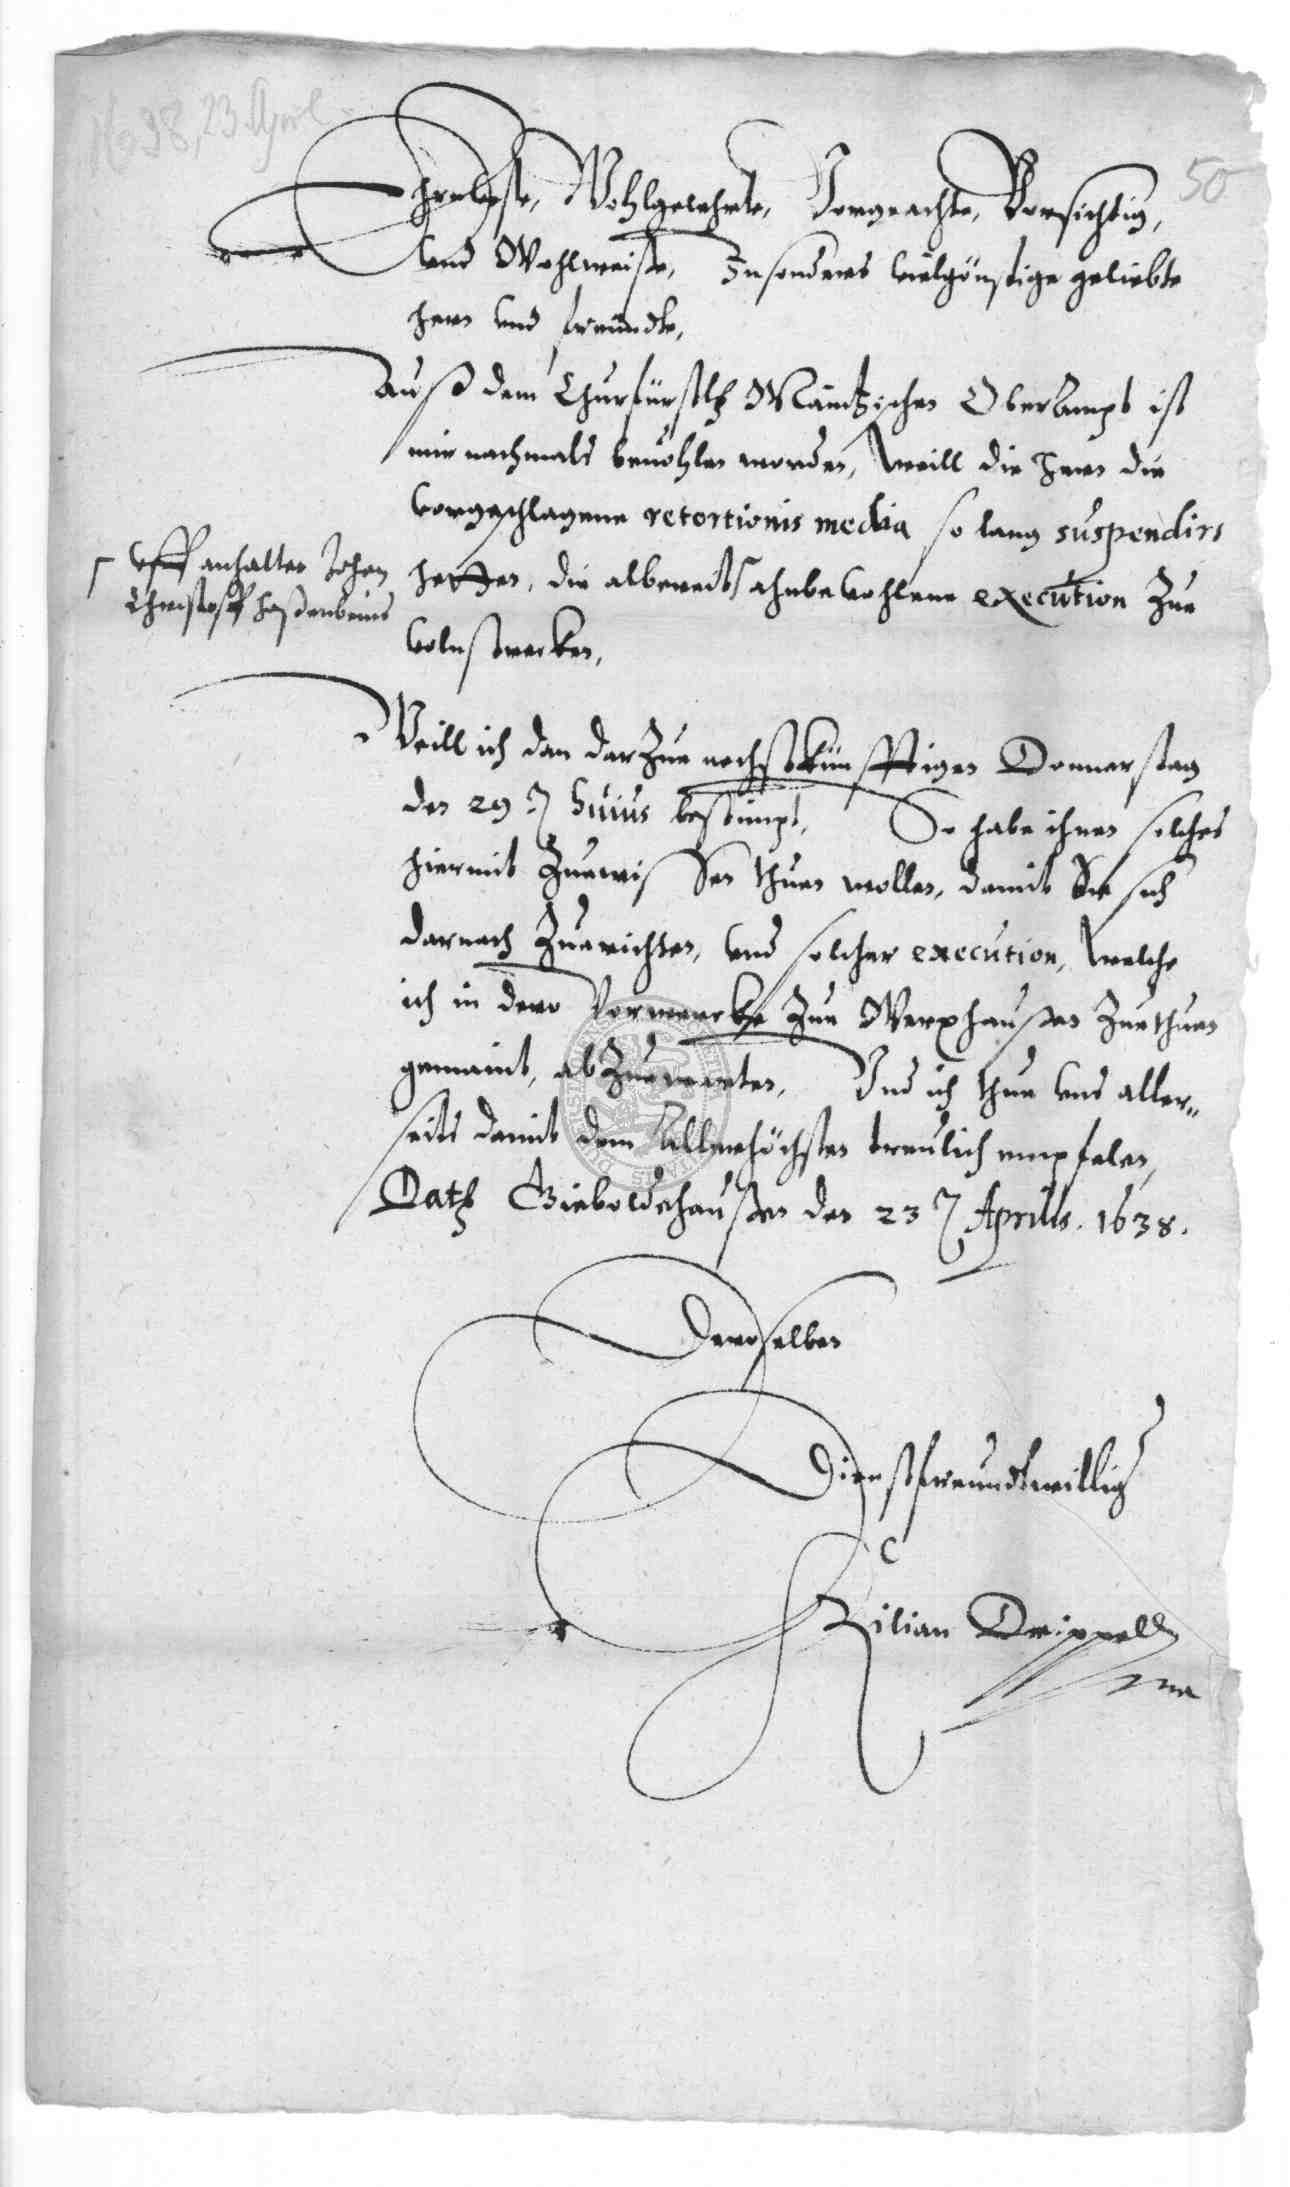 1638, 23. April
50
Ehrnveste, Wohlgelehrte, Vorgeachte, Vorsichtig,
Und Wohlweiße, Insonders vielgönstige geliebte
hern und freundte,
Auß dem Churfürstl: Maintzischen Oberampt ist
mir nachmals bevohlen worden, Weill die hern die
vorgeschlagene retortionis media so lang suspendirt
hetten, die albereits ┌ ahnbevohlene execution Zue
┌ Uff anhalten Johan
Christoff Haßenbeins
volnstrecken,
Weill ich dan darZue nechstkünfftigen Donnerstag
den 29 t huius bestimpt, So habe ihnen solches
hiermit Zuewissen thuen wollen, damit Sie sich
darnach Zuerichten, und solcher execution, welche
ich in dero Vorwercke Zue Werxhaußen Zuethuen
gemaint, abZuewarten, Und ich thue uns aller„
seits damit dem Allerhöchsten treulich empfelen,
Dat: Gieboldehaußen den 23 t Aprilis. 1638.
Deroselben
Dienstfreundtwillig
Kilian Drippell
mp